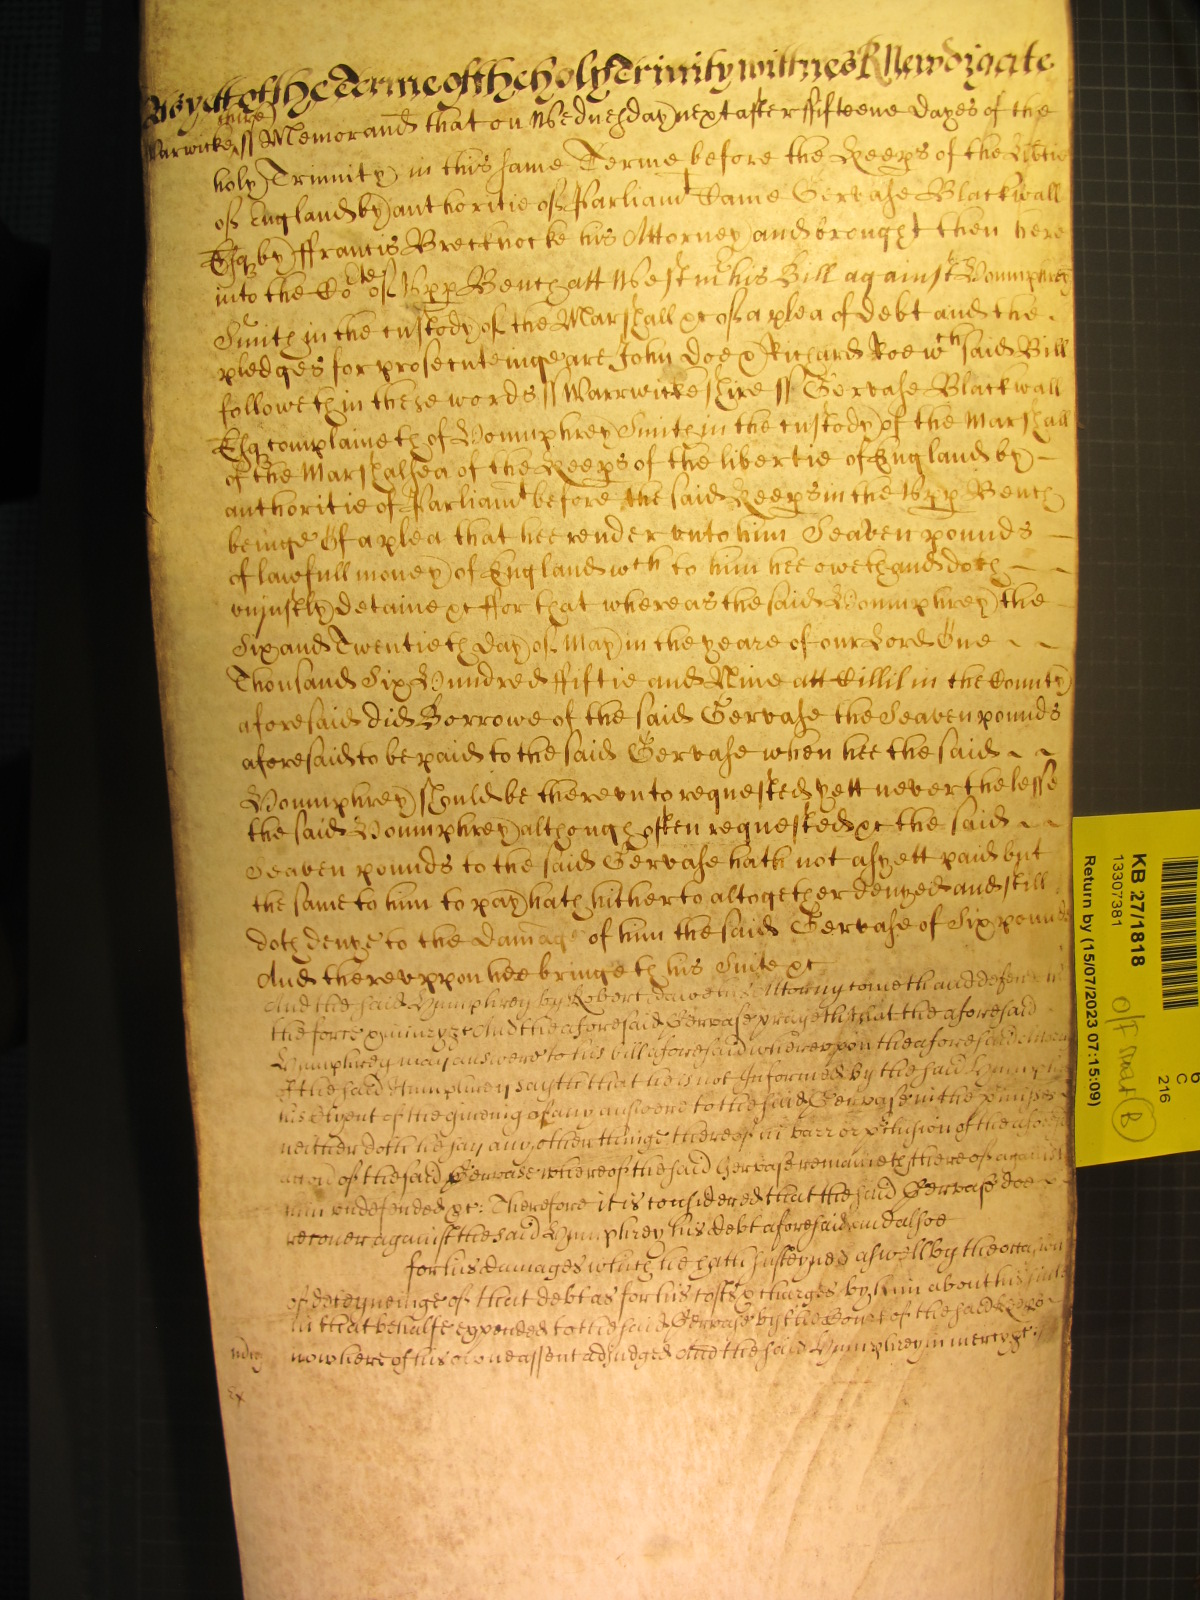 Yett of the Terme of the holy Trinity wittnes R Newdigate
Warwickeshire ss Memorand that on Wednesday next after ffifteene dayes of the
holy Trinnity in this same Terme before the Keeps of the Libtie
of England by authoritie of Parliamt Came Gervase Blackwall
Esq by ffrancis Brecknocke his Attorney and brought then here
into the Cote of Upp Bench att Westmr his Bill against Houmphrey
Smith in the custody of the Marshall &c of a plea of debt and the
pledges for prosecuteinge are John Doe & Richard Roe wch said Bill
followeth in these words ss Warrwickeshire ss Gervase Blackwall
Esq complaineth of Houmphrey Smith in the custody of the Marshall
of the Marshalsea of the Keeps of the libertie of England by
authoritie of Parliamt before the said Keeps in the Upp Bench
beinge Of a plea that hee render unto him Seaven pounds
of lawfull money of England wch to him hee oweth and doth
unjustly detaine &c ffor that whereas the said Houmphrey the
Six and Twentieth Day of May in the yeare of our Lord One
Thousand Six Hundred ffiftie and Nine att Villil in the County
aforesaid did Borrowe of the said Gervase the Seaven pounds
aforesaid to be paid to the said Gervase when hee the said
Houmphrey should be thereunto requested yett neverthelesse
the said Houmphrey although often requested &c the said
Seaven pounds to the said Gervase hath not as yett paid but
the same to him to pay hath hitherto altogether denyed and still
doth denye to the damage of him the said Gervase of Six pounds
And thereuppon hee bringeth his Suite &c
And the said Humphrey by Robert his Attorny cometh and defendeth
the force & injury &c And the aforesaid Gervase prayeth that the aforesaid
Humphrey may answere to his bill aforesaid whereupon the aforesaid
of the said Humphrey sayth that he is not Informed by the said Humphrey
his Clyent of the giveing of any answere to the said Gervase in the pmisses
neither doth he say any other thinge thereof in barr or pclusion of the aforesaid
accon of the said Gervase whereof the said Gervase remaineth thereof against
him undefended &c: Therefore it is considered that the said Gervase doe
recover against the said Humphrey his debt aforesaid and alsoe
for his damages which he hath susteyned aswell by the occasion
of deteyneinge of that debt as for his costs & charges by him about his suite
in that behalfe expended to the said Gervase by the Court of the said Keeps
now here of his owne assent adjudged And the said Humphrey in mercy &c
Ex
KB 27/1818
13307381
Return by (15/07/2023 07:15:09)
C
216